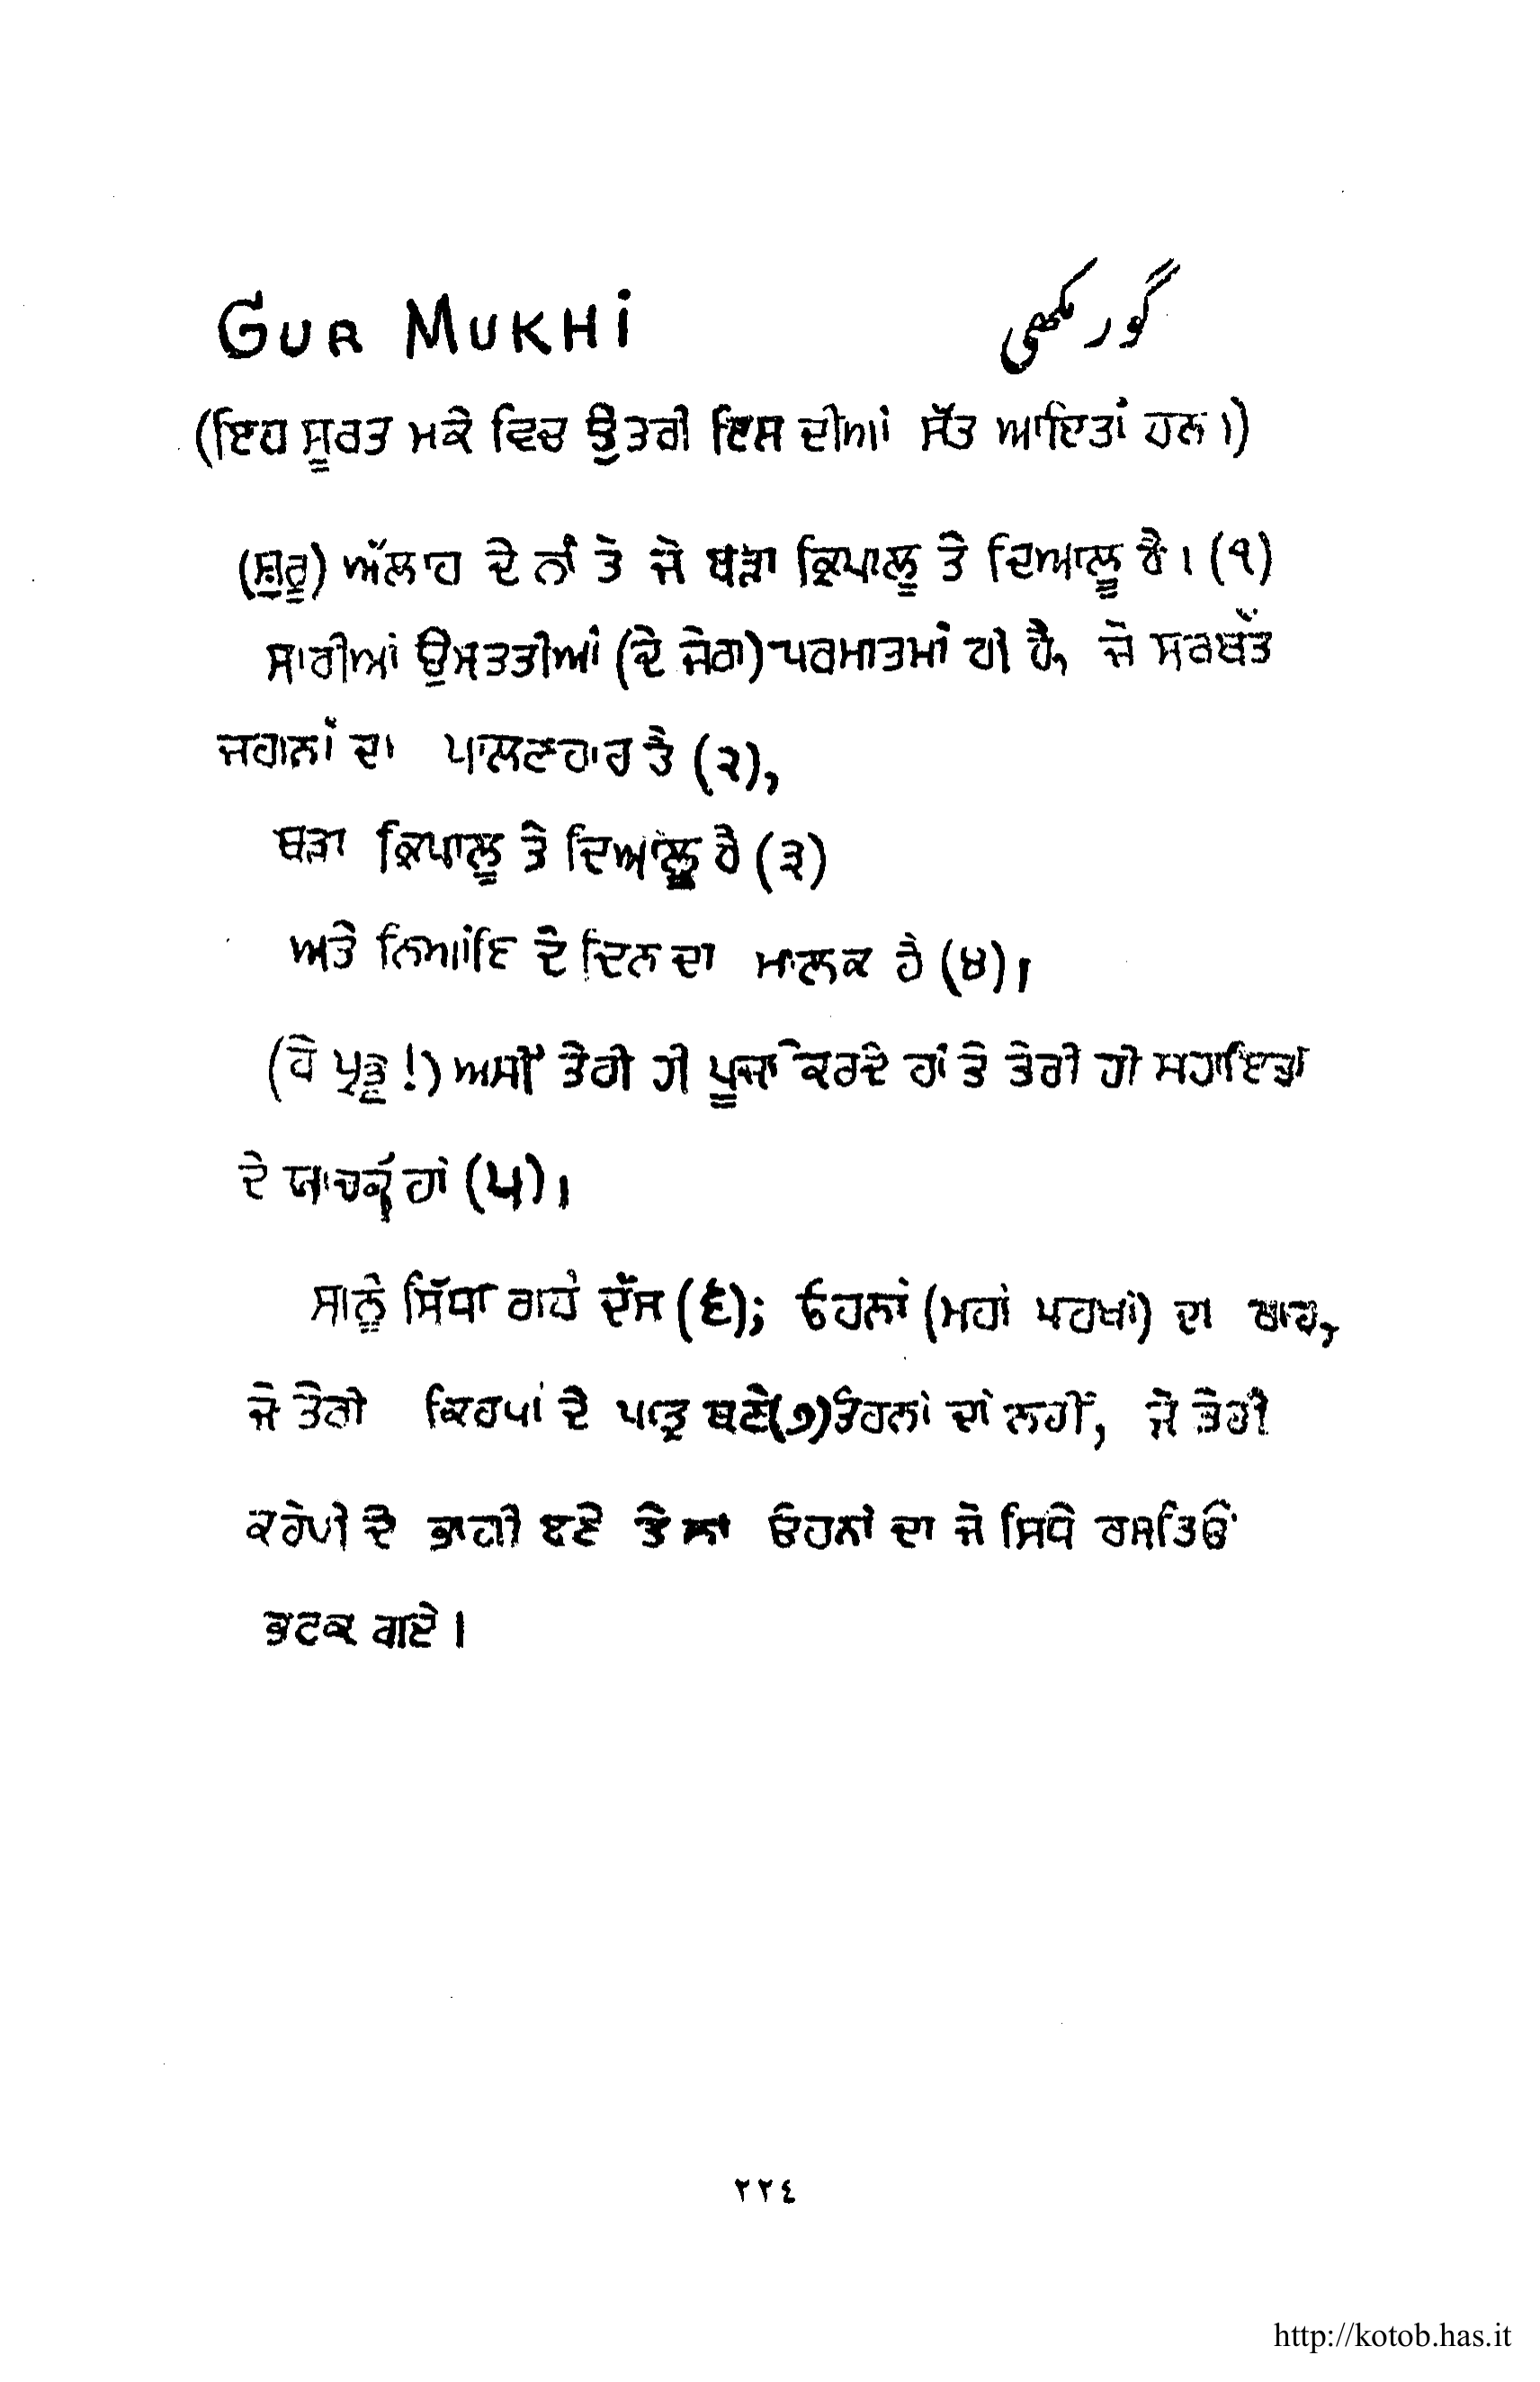 GUR MUKHI گورمکھی
(ਇਹ ਸੂਰਤ ਮਕੇ ਵਿਚ ਉਤਰੀ ਇਸ ਦੀਆਂ ਸੱਤ ਆਇਤਾਂ ਹਨ।)
(ਸ਼ੁਰੂ) ਅੱਲਾਹ ਦੇ ਨਾਂ ਤੇ ਜੋ ਬੜਾ ਕ੍ਰਿਪਾਲੂ ਤੇ ਦਿਆਲੂ ਹੈ। (੧)
ਸਾਰੀਆਂ ਉਸਤਤੀਆਂ (ਦੇ ਜੋਗ) ਪਰਮਾਤਮਾਂ ਹੀ ਹੈ, ਜੋ ਸਰਬੱਤ
ਜਹਾਨਾਂ ਦਾ ਪਾਲਣਹਾਰ ਤੇ (੨),
ਬੜਾ ਕ੍ਰਿਪਾਲੂ ਤੇ ਦਿਆਲੂ ਹੈ (੩)
ਅਤੇ ਨਿਆਂਇ ਦੇ ਦਿਨ ਦਾ ਮਾਲਕ ਹੈ (੪)।
(ਹੇ ਪ੍ਰਭੂ!) ਅਸੀਂ ਤੇਰੀ ਹੀ ਪੂਜਾ ਕਰਦੇ ਹਾਂ ਤੇ ਤੇਰੀ ਹੀ ਸਹਾਇਤਾ
ਦੇ ਯਾਚਕ ਹਾਂ (੫)।
ਸਾਨੂੰ ਸਿੱਧਾ ਰਾਹ ਦੱਸ (੬); ਓਹਨਾਂ (ਮਹਾਂ ਪੁਰਖਾਂ) ਦਾ ਰਾਹ,
ਜੋ ਤੇਰੀ ਕਿਰਪਾ ਦੇ ਪਾਤ੍ਰ ਬਣੇ (੭) ਓਹਨਾਂ ਦਾ ਨਹੀਂ, ਜੋ ਤੇਰੀ
ਕਰੋਪੀ ਦੇ ਭਾਗੀ ਬਣੇ ਤੇ ਨਾ ਓਹਨਾਂ ਦਾ ਜੋ ਸਿਧੇ ਰਸਤਿਓਂ
ਭਟਕ ਗਏ।
٢٢٤
http://kotob.has.it